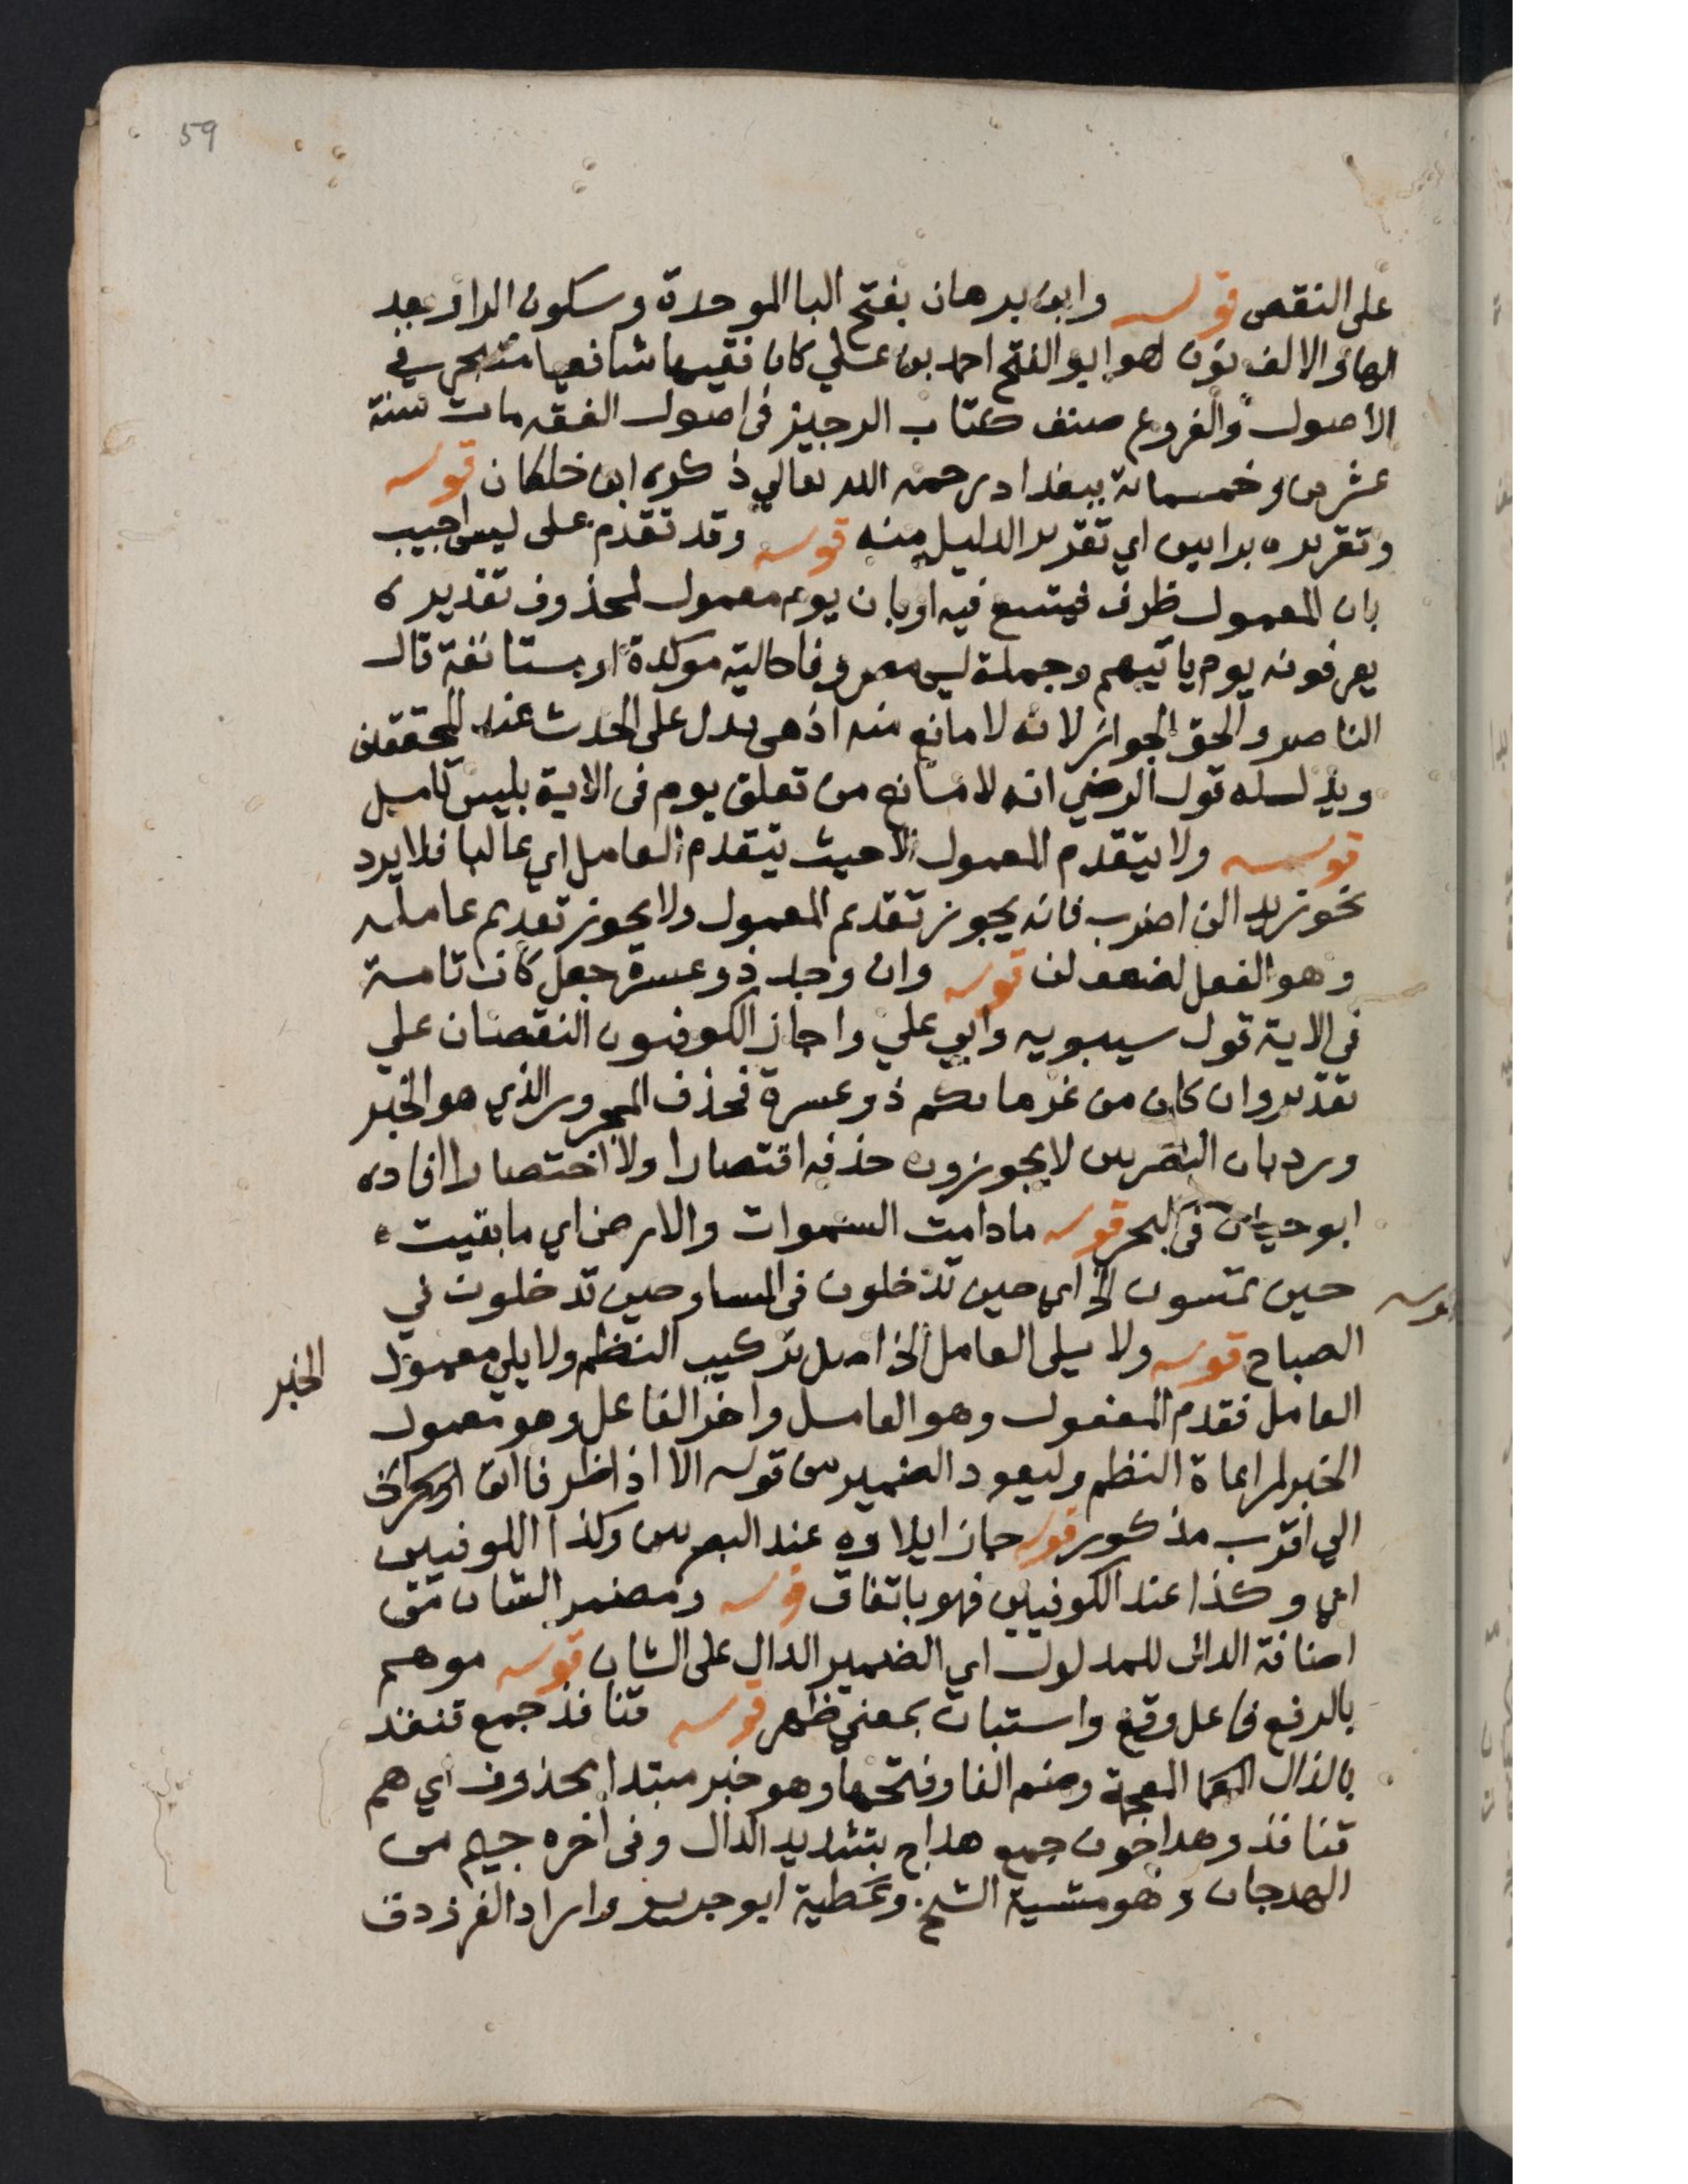 59
على النقص قوله وابن برهان بفتح البا الموحدة وسكون الرا وبعد
الها والالف نون هو ابو الفتح احمد بن علي كان فقيها شافعيا متبحر في
الاصول والفروع صنف كتاب الوجيز في اصول الفقه مات سنة
عشرين وخمسمائة ببغداد رحمه الله تعالي ذكره ابن خلكان قوله
وتقريره براس اي تقرير الدليل منه قوله وقد تقدم على ليس اجيب
بان المعمول ظرف فيتسع فيه او بان يوم معمول لمحذوف تقديره
يعرفونه يوم ياتيهم وجملة ليس مصروفا حالية موكدة او مستانفة قال
الناصر والحق الجواز لانه لا مانع منه اذ هى تدل على الحدث عند المحققين
ويد لسله قول الرضي انه لا مانع من تعلق يوم فى الاية بليس
قوله ولا يتقدم المعمول الا حيث يتقدم العامل اي غالبا فلا يرد
نحو زيدا لن اضرب فانه يجوز تقديم المعمول ولا يجوز تقديم عامله
وهو الفعل لضعف لن قوله وان وجد ذو عسرة جعل كان تامة
في الاية قول سيبويه وابي علي واجاز الكوفيون النقصان علي
تقدير وان كان من غرمائكم ذو عسرة فحذف المجرور الذي هو الخبر
ورد بان البصريين لا يجوزون حذفه اقتصارا ولا اختصارا افاده
ابو حيان فى البحر قوله ما دامت السموات والارض اي ما بقيت
قوله حين تمسون الخ اي حين تدخلون فى المساو حين تدخلون في
الصباح قوله ولا يلي العامل الخ اصل تركيب النظم ولا يلي معمول الخبر
العامل فقدم المفعول وهو العامل واخر الفاعل وهو معمول
الخبر لمراعاة النظم وليعود الضمير من قوله الا اذا ظرفا اتى او حرف
الي اقرب مذكور قوله جاز ايلاوه عند البصريين وكذا الكوفيين
اي وكذا عند الكوفيين فهو باتفاق قوله ومضمر الشان من
اضافة الدال للمدلول اي الضمير الدال على الشان قوله موهم
بالرفع فاعل وقع واستبان بمعني ظهر قوله قنافذ جمع قنفذ
بالذال المعجمة وضم الفا وفتحها وهو خبر مبتدا محذوف اي هم
قنافذ وهداجون جمع هداج بتشديد الدال وفى اخره جيم من
الهدجان وهو مشية الشيخ وعطية ابو جرير واراد الفرزدق